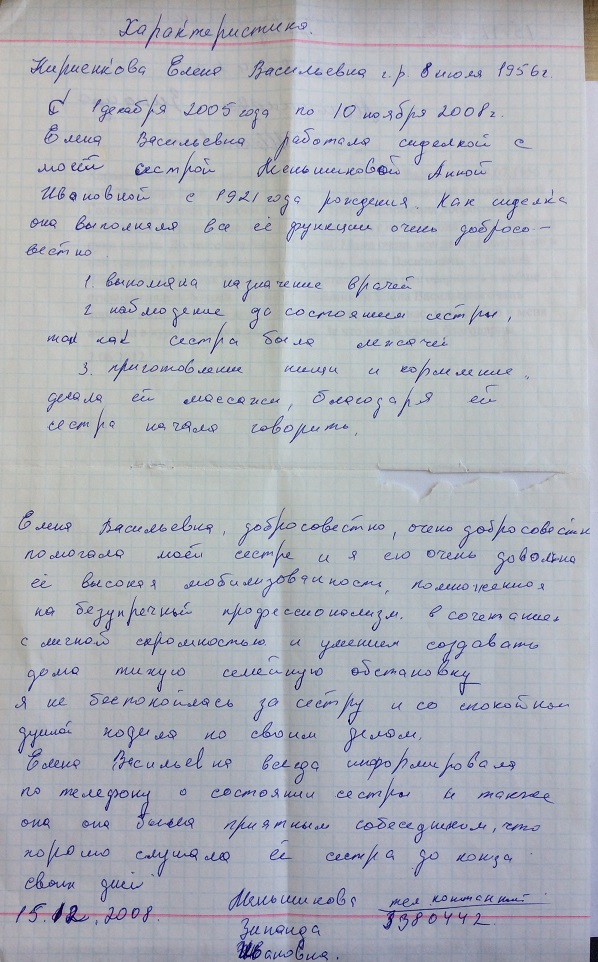 Характеристика.
Кириенкова Елена Васильевна г.р. 8 июля 1956г.
С 1 декабря 2005 года по 10 ноября 2008г.
Елена Васильевна работала сиделкой с
моей сестрой Меньшиковой Анной
Ивановной с 1921 года рождения. Как сиделка
она выполняла все её функции очень добросо-
вестно
1. выполняла назначение врачей
2 наблюдение за состоянием сестры,
так как сестра была лежачей
3. приготовление пищи и кормление,
делала ей массажи, благодаря ей
сестра начала говорить.
Елена Васильевна, добросовестно, очень добросовестн
помогала моей сестре и я ею очень довольна
её высокая мобилизованность, помноженная
на безупречный профессионализм. в сочетание
с личной скромностью и умением создавать
дома тихую семейную обстановку
я не беспокоилась за сестру и со спокойной
душой ходила по своим делам.
Елена Васильевна всегда информировала
по телефону о состоянии сестры и также
она она была приятным собеседником, что
хорошо слушала её сестра до конца
своих дней
Меньшикова тел контактный
15.12.2008. 3380442.
Зинаида
Ивановна.